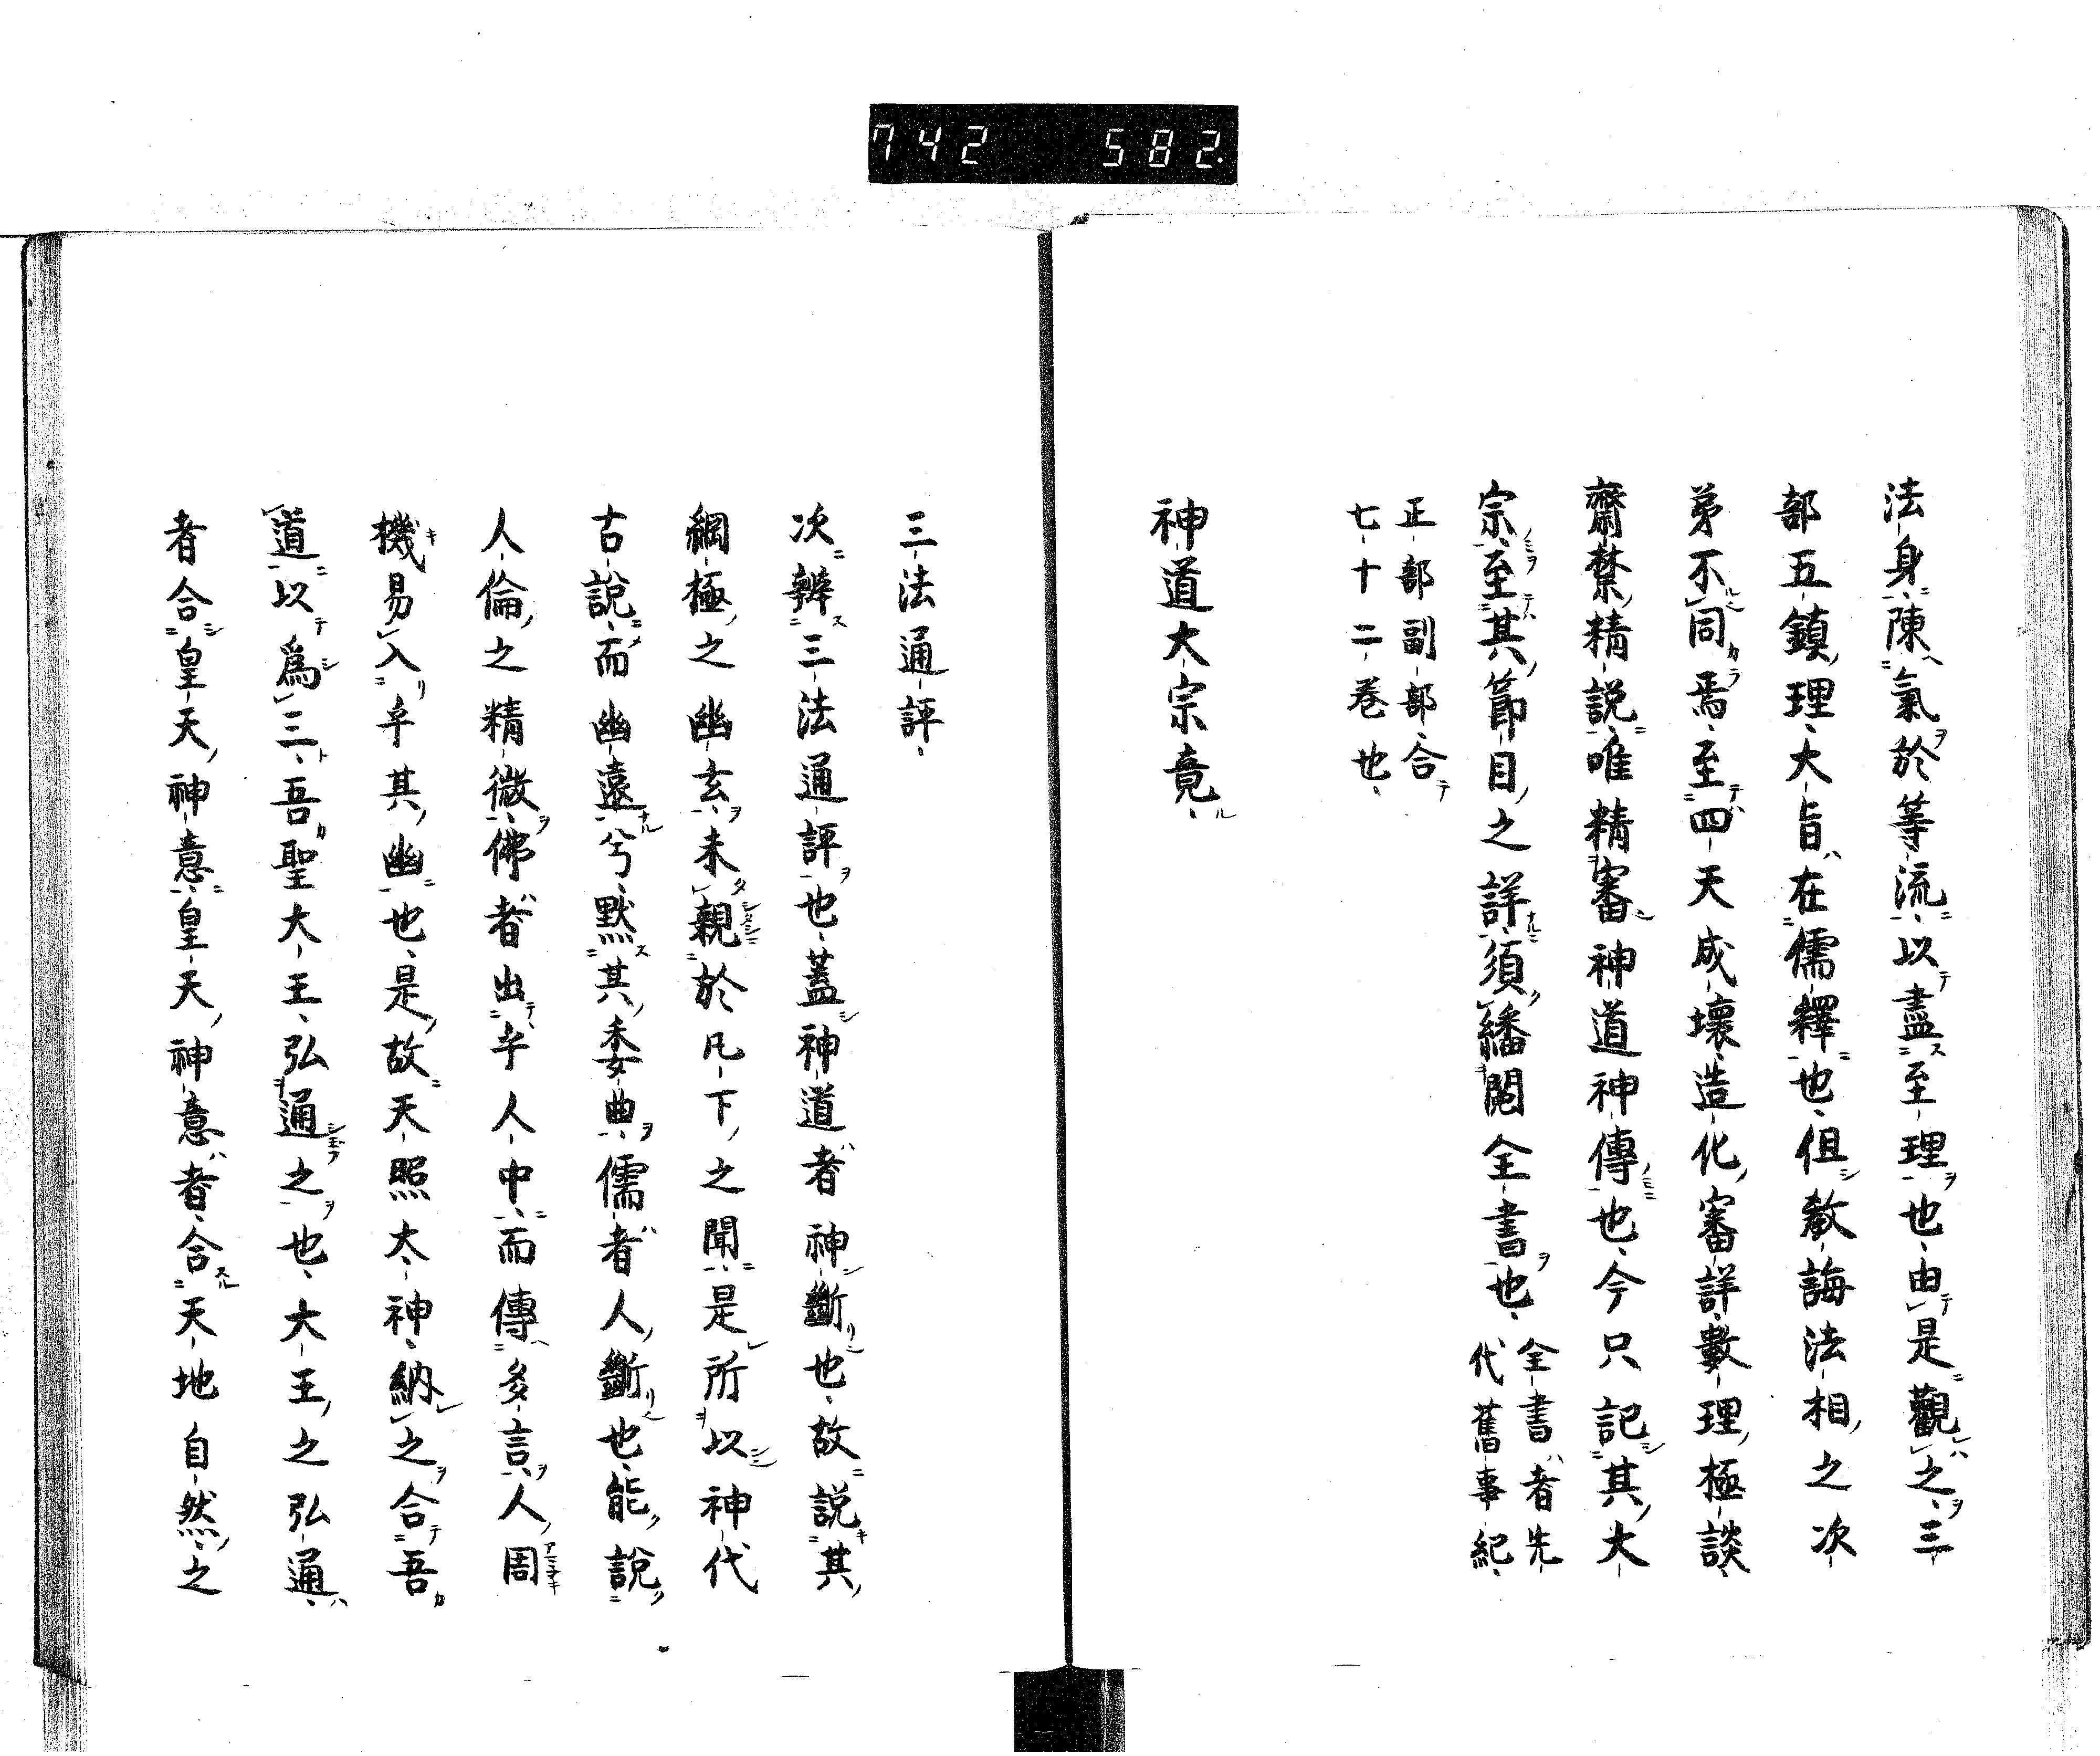 742 582.
法身陳氣於等流以盡至理也由是觀之三
部五鎮理大旨在儒釋也但教誨法相之次
第不同焉至四天成壞造化審詳數理極談
齋禁精說唯精審神道神傳也今只記其大
宗至其節目之詳須繙閱全書也
全書者先
代舊事紀
正部副部合
七十二卷也
神道大宗竟
三法通評
次辨三法通評也蓋神道者神斷也故説其
綱極之幽玄未親於凡下之聞是所以神代
古說而幽遠兮默其委曲儒者人斷也能說
人倫之精微佛者出乎人中而傳多言人周
機易入乎其幽也是故天照太神納之合吾
道以爲三吾聖大王弘通之也大王之弘通
者合皇天神意皇天神意者合天地自然之